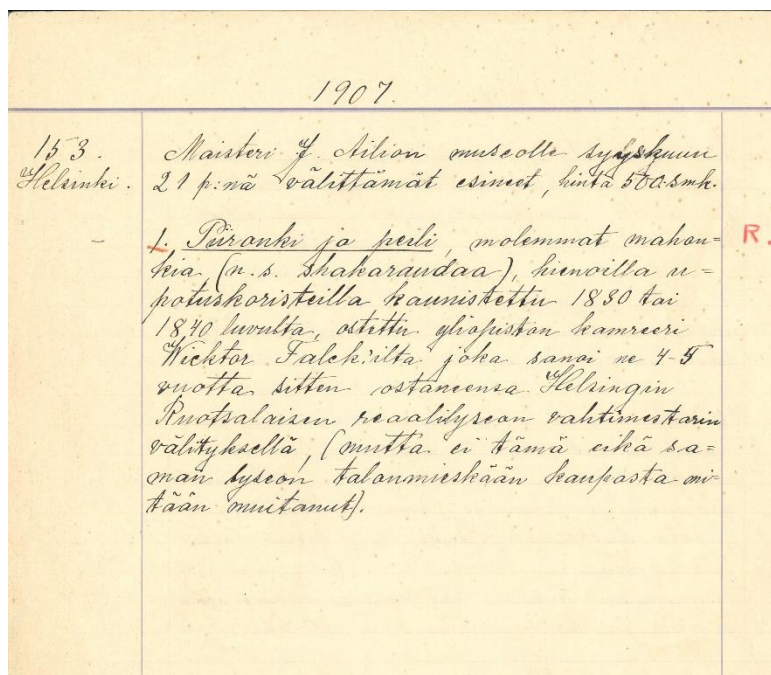 1907.
153.
Helsinki.
Maisteri J. Ailion museolle syyskuun
21 p:nä välittämät esineet, hinta 500 smk.
–
1. Piironki ja peili, molemmat mahon=
kia (n. s. shakaraudaa), hienoilla u=
potuskoristeilla kaunistettu 1830 tai
1840 luvulta, ostettu yliopiston kamreeri
Wicktor Falck'ilta joka sanoi ne 4-5
vuotta sitten ostaneensa Helsingin
Ruotsalaisen reaalilyseon vahtimestarin
välityksellä, (mutta ei tämä eikä sa=
man lyseon talonmieskään kaupasta mi=
tään muitanut).
R.